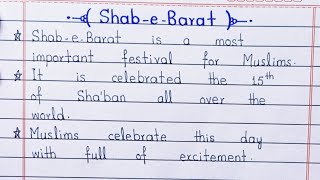 Shab-e-Barat
☆ Shab-e-Barat is a most
important festival for Muslims.
☆ It is celebrated the 15th
of Sha'ban all over the
world.
☆ Muslims celebrate this day
with full of excitement.